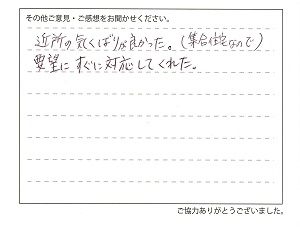 その他ご意見・ご感想をお聞かせください。
近所の気くばりが良かった。(集合住宅なので)
要望にすぐに対応してくれた。
ご協力ありがとうございました。